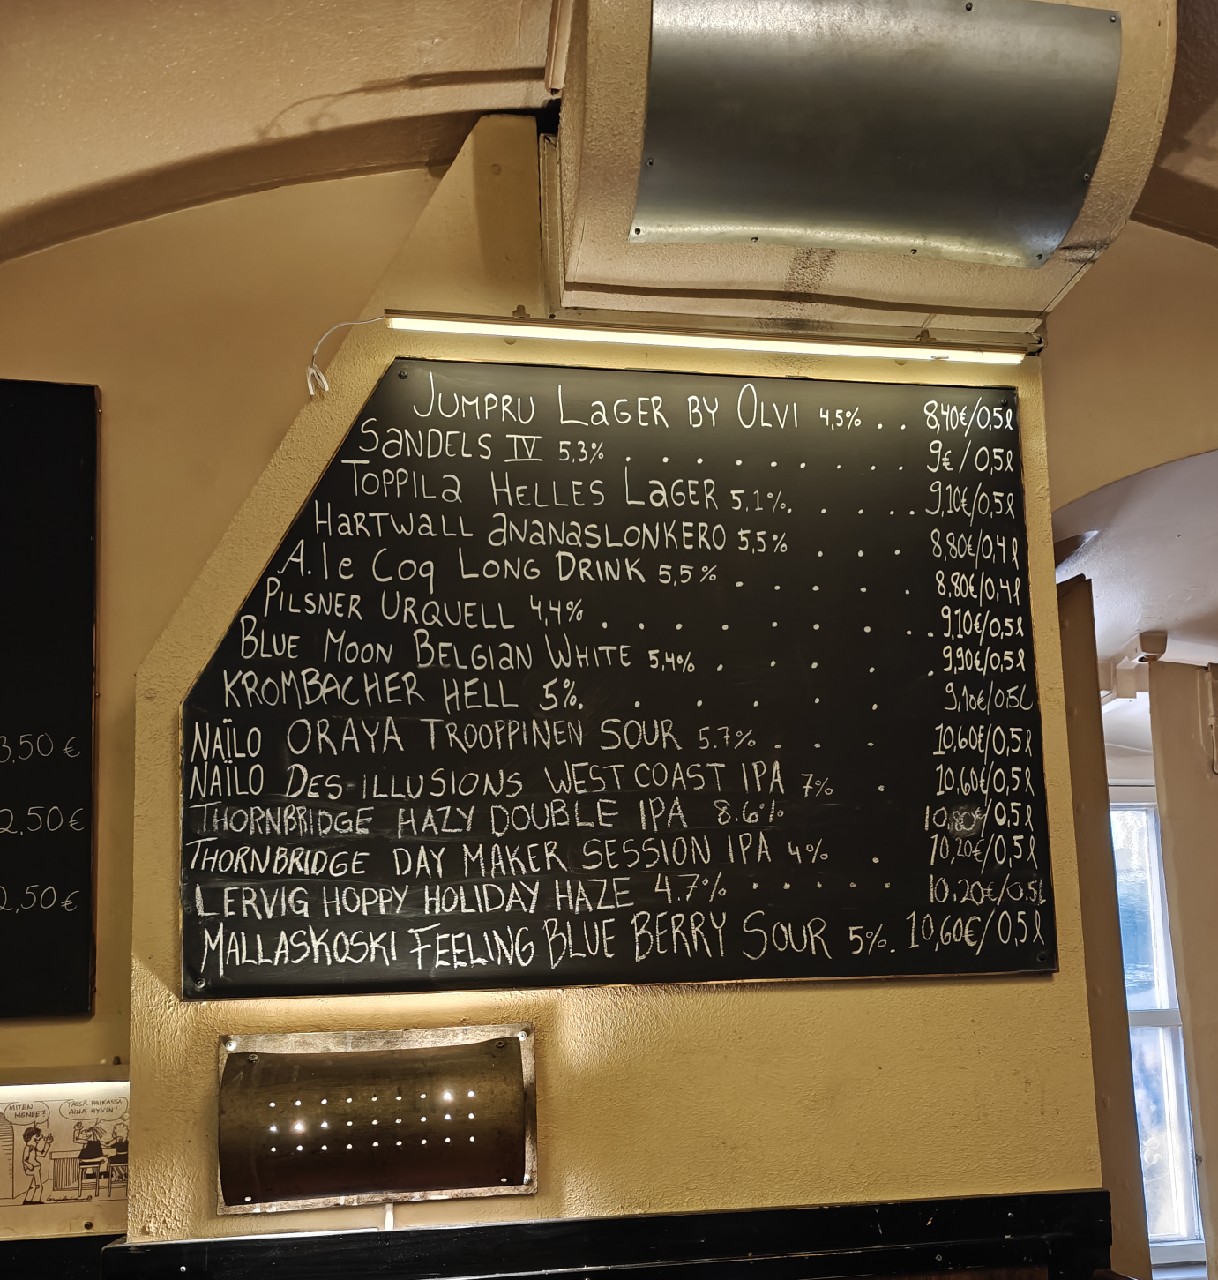 JUMPRU LAGER BY OLVI 4,5% . . 8,40€/0,5l
SANDELS IV 5,3% . . . . . . . . . 9€/0,5l
TOPPILA HELLES LAGER 5,1%. . . . . . 9,10€/0,5l
HARTWALL ANANASLONKERO 5,5% . . . 8,80€/0,4l
A. le Coq LONG DRINK 5,5% . . . . . 8.80€/0,4l
PILSNER URQUELL 4,4% . . . . . . . . 9,10€/0,5l
BLUE MOON BELGIAN WHITE 5,4% . . . . . 9,90€/0,5l
KROMBACHER HELL 5%. . . . . . 9,10€/0,5L
NAÏLO ORAYA TROOPPINEN SOUR 5.7% . . . 10,60€/0,5l
NAÏLO DES-ILLUSIONS WEST COAST IPA 7% . 10,60€/0,5l
THORNBRIDGE HAZY DOUBLE IPA 8.6% 10,80€/0,5l
THORNBRIDGE DAY MAKER SESSION IPA 4% . 10,20€/0,5l
LERVIG HOPPY HOLIDAY HAZE 4.7% . . . . . 10.20€/0,5L
MALLASKOSKI FEELING BLUE BERRY SOUR 5%. 10,60€/0,5l
3,50 €
2,50 €
2,50 €
MITEN MENEE?
TÄSSÄ PAIKASSA AINA HYVIN!